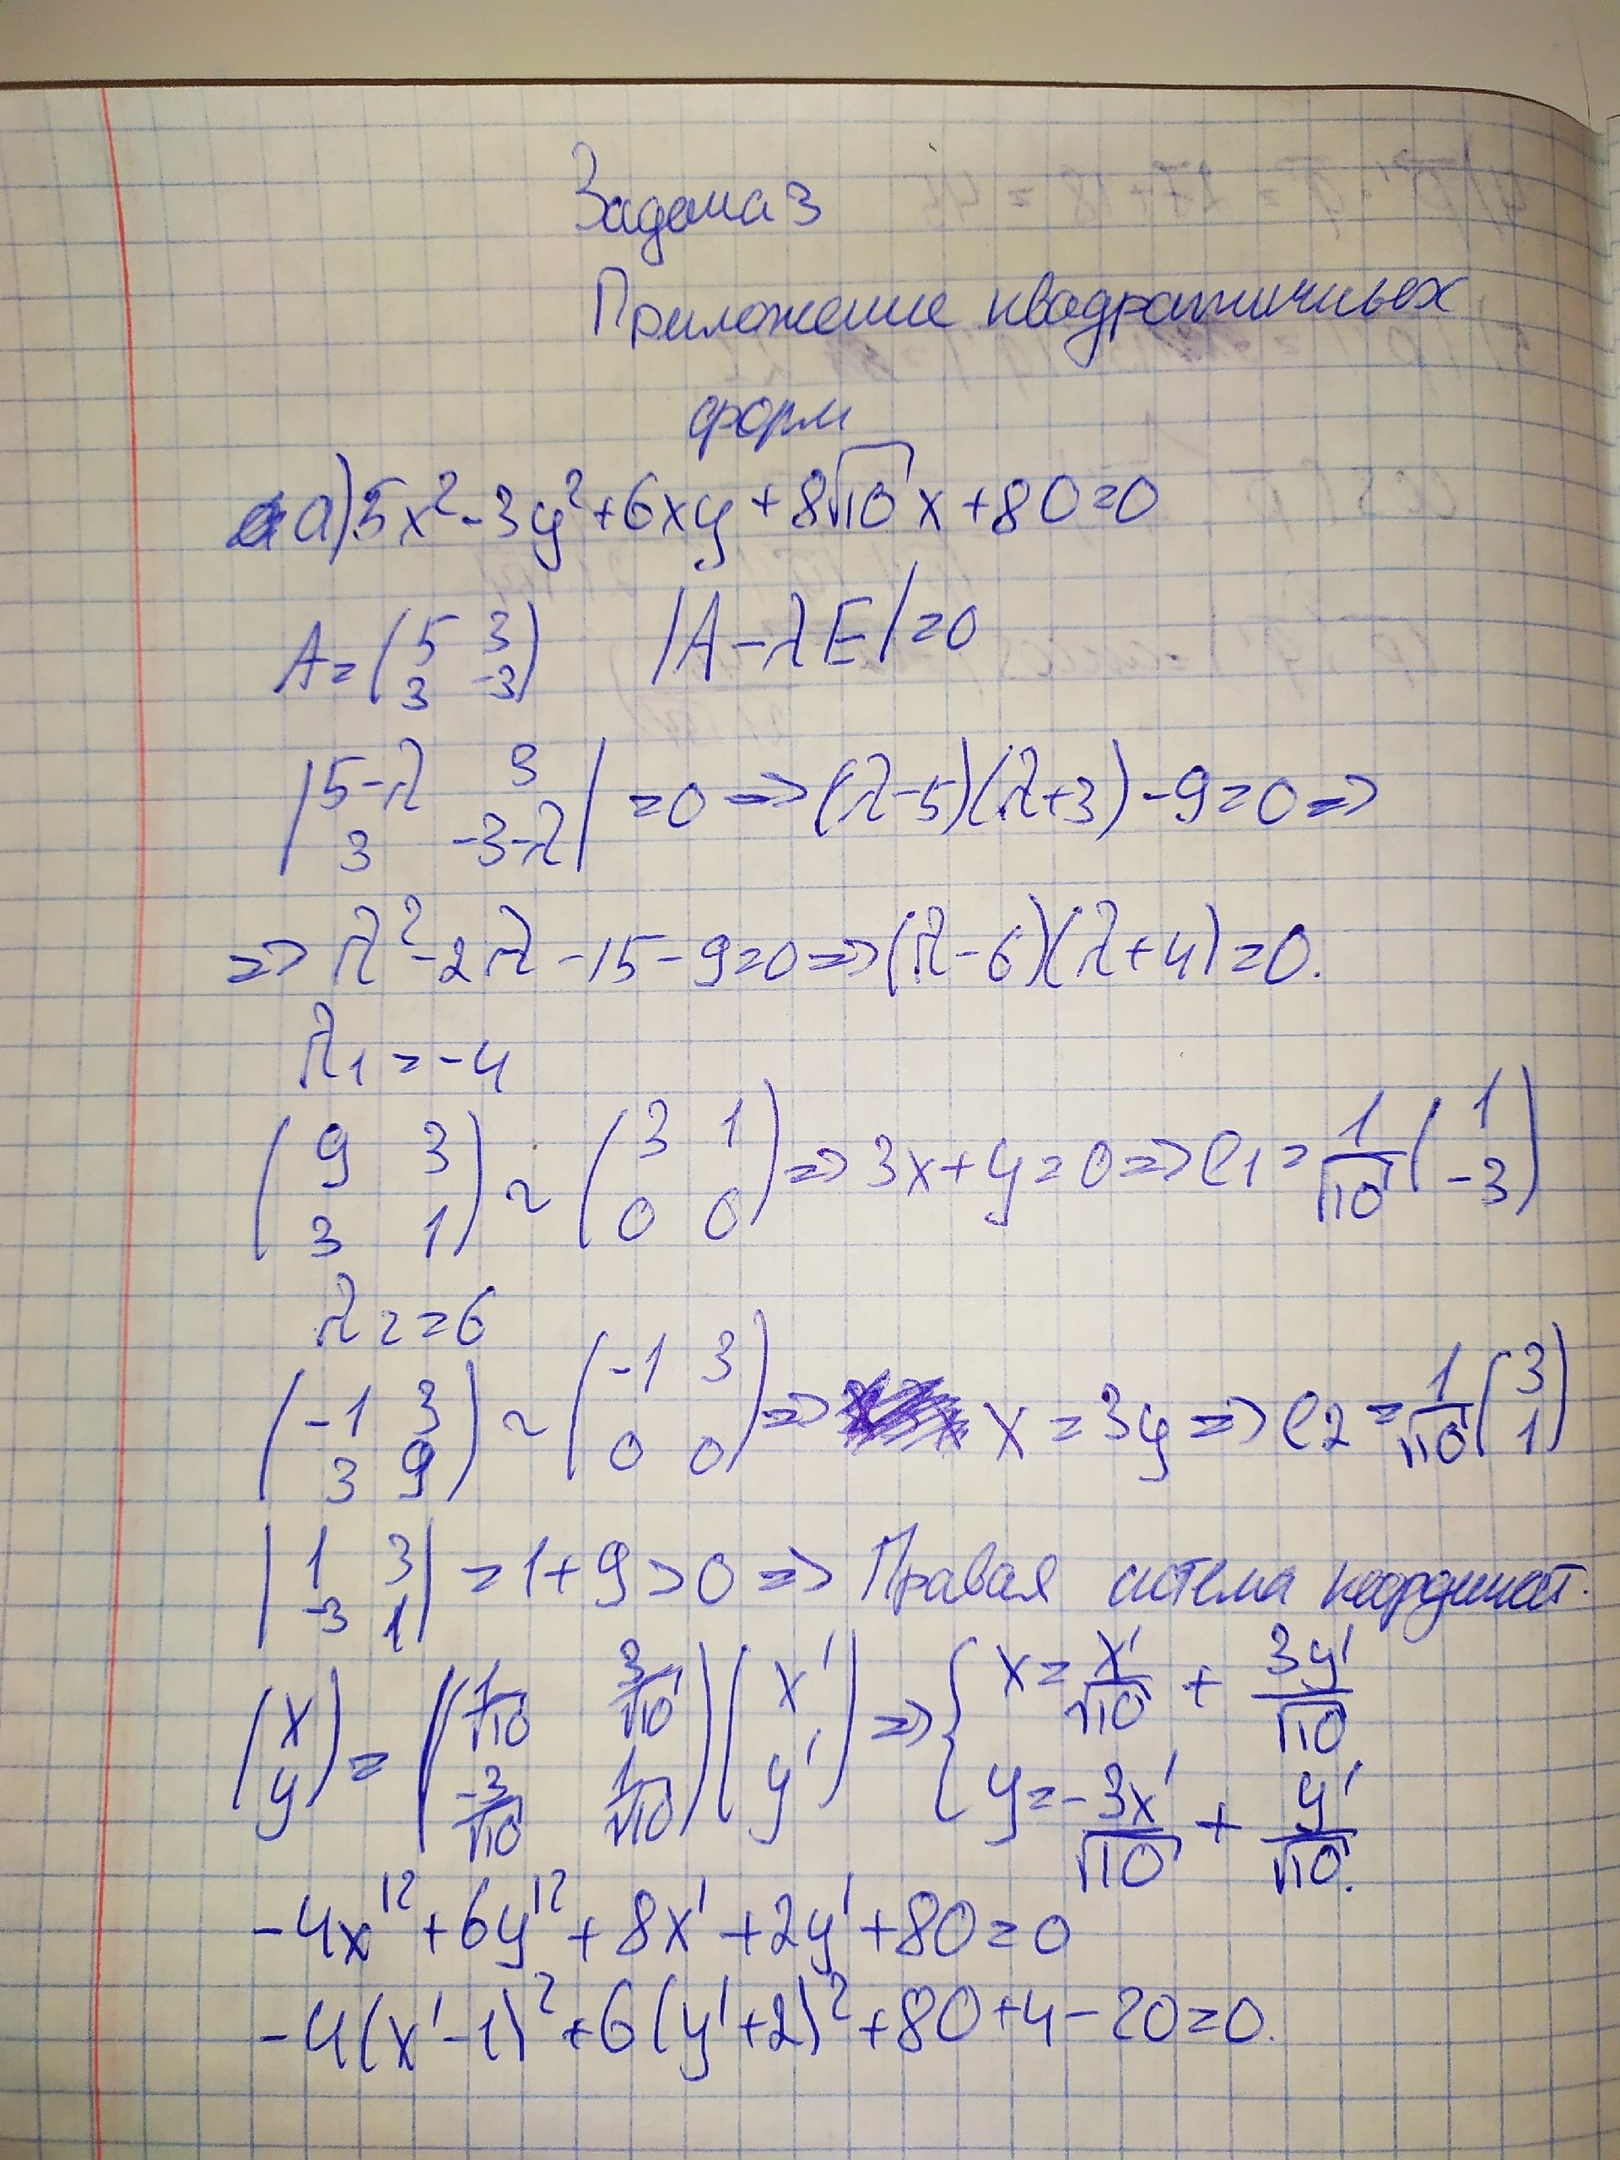 Задача 3
Приложение квадратичных
форм
а) 5x² - 3y² + 6xy + 8√10 x + 80 = 0
A = (5 3; 3 -3) |A - λE| = 0
|5-λ 3; 3 -3-λ| = 0 => (λ-5)(λ+3) - 9 = 0 =>
=> λ² - 2λ - 15 - 9 = 0 => (λ-6)(λ+4) = 0.
λ1 = -4
(9 3; 3 1) ~ (3 1; 0 0) => 3x + y = 0 => e1 = 1/√10 (1; -3)
λ2 = 6
(-1 3; 3 9) ~ (-1 3; 0 0) => x = 3y => e2 = 1/√10 (3; 1)
|1 3; -3 1| = 1 + 9 > 0 => Правая система координат.
(x; y) = (1/√10 3/√10; -3/√10 1/√10)(x'; y') => { x = x'/√10 + 3y'/√10; y = -3x'/√10 + y'/√10.
-4x'² + 6y'² + 8x' + 2y' + 80 = 0
-4(x'-1)² + 6(y'+2)² + 80 + 4 - 20 = 0.